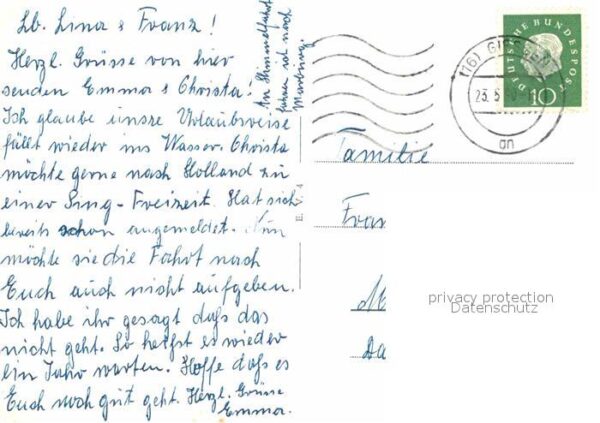 Lb. Lina & Franz!
Herzl. Grüsse von hier
senden Emma & Christa!
Ich glaube unsre Urlaubsreise
fällt wieder ins Wasser. Christa
möchte gerne nach Holland zu
einer Sing-Freizeit. Hat sich
bereits schon angemeldet. Nun
möchte sie die Fahrt nach
Euch auch nicht aufgeben.
Ich habe ihr gesagt daß das
nicht geht. So heißt es wieder
ein Jahr warten. Hoffe daß es
Euch noch gut geht. Herzl. Grüsse
Emma.
An Himmelfahrt
fahren wir nach
Marburg.
E. V. 4
DEUTSCHE BUNDESPOST
10
(16) GIESSEN
23. 5.
an
Familie
Fran
privacy protection
Datenschutz